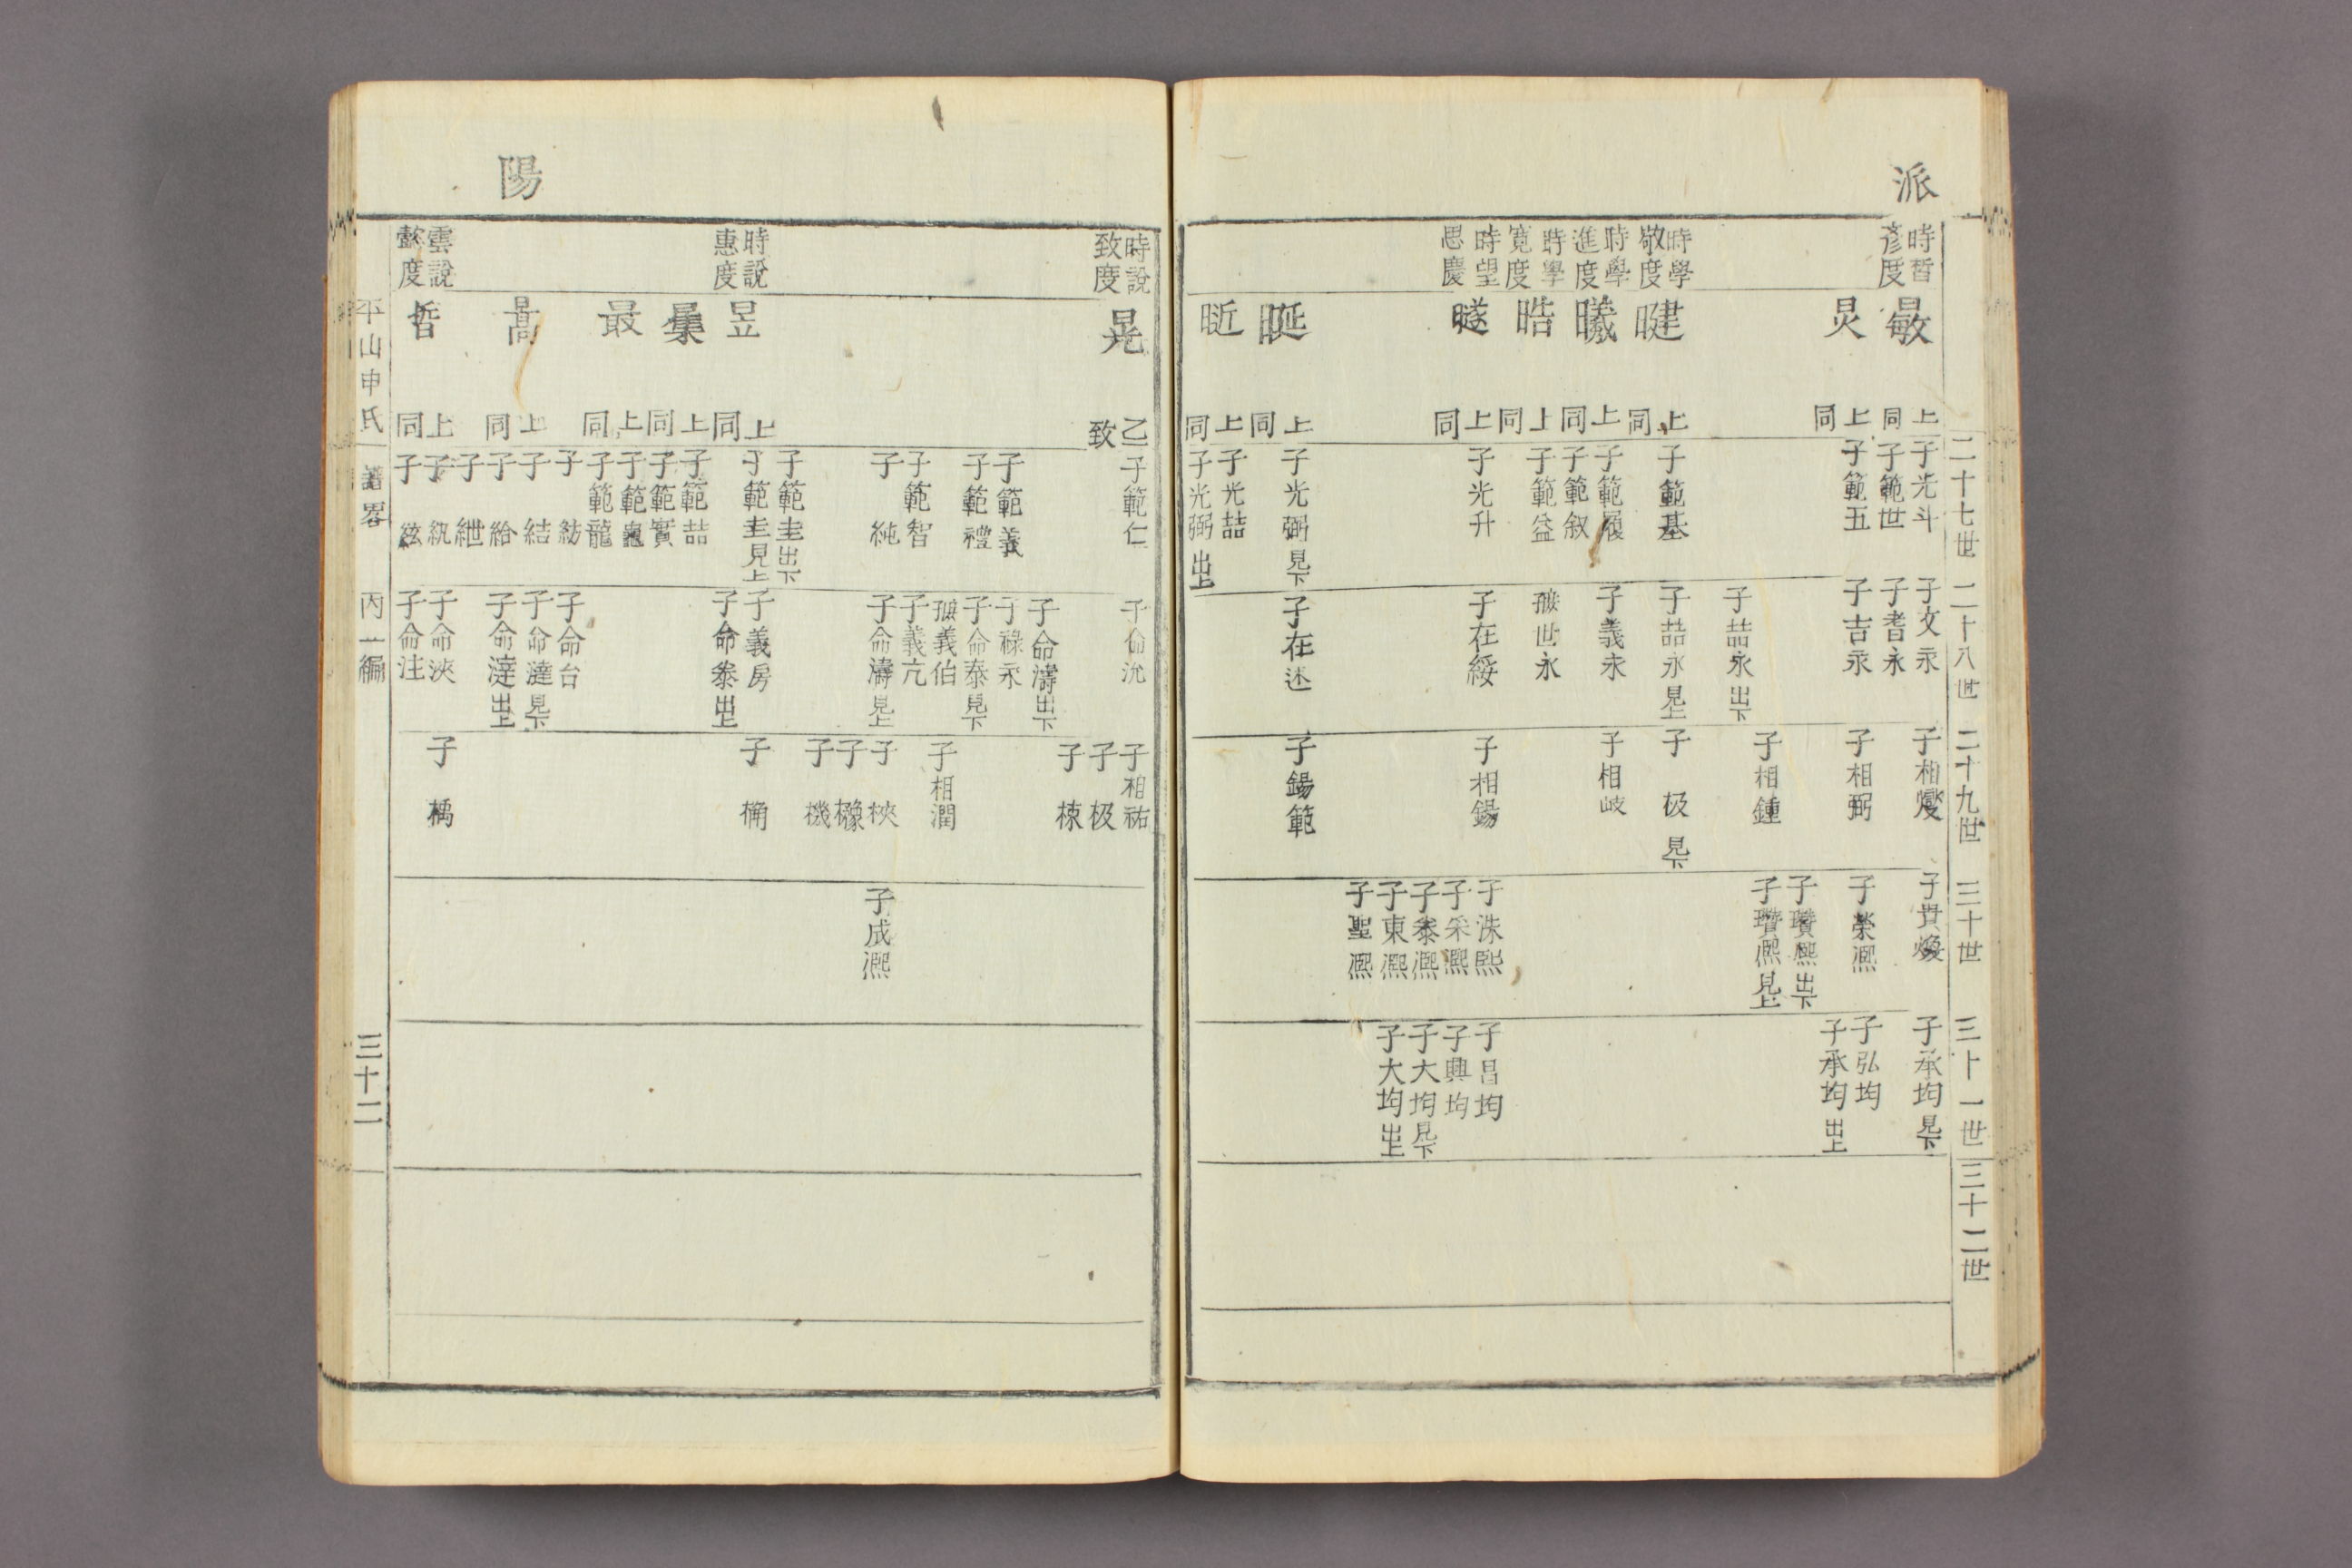 派
時晳
彦度
時學
敬度
時學
進度
時學
寛度
時望
思慶
炅
暍
曦
晧
暆
上同
上同
上同
上同
上同
上同
上同
上同
子光斗
子範世
子範五
子範基
子範履
子範叙
子範益
子光升
子光弼 見下
子光喆
子光弼 出上
子文永
子耆永
子吉永
子喆永 出下
子喆永 見上
子義永
孫世永
子在綏
子在述
子相燮
子相弼
子相鍾
子极 見下
子相岐
子相鍚
子鍚範
子貫煥
子榮凞
子瓚凞 出下
子瓚凞 見上
子洙熙
子采凞
子泰凞
子東凞
子聖凞
子承均 見下
子弘均
子承均 出上
子昌均
子興均
子大均 見下
子大均 出上
二十七世
二十八世
二十九世
三十世
三十一世
三十二世
陽
時說
致度
時說
惠度
雲說
懿度
晃
昱
最
晢
乙致
上同
上同
上同
上同
上同
子範仁
子範義
子範禮
子範智
子純
子範圭 出下
子範圭 見上
子範喆
子範實
子範龍
子紡
子結
子給
子紲
子紈
子絃
子命沇
子命濤 出下
子祿永
子命泰 見下
孫義伯
子義亢
子命濤 見上
子義房
子命泰 出上
子命台
子命澾 見下
子命澾 出上
子命浹
子命注
子相祐
子极
子梀
子相潤
子梜
子機
子桷
子成凞
平山申氏
譜畧
丙一編
三十二